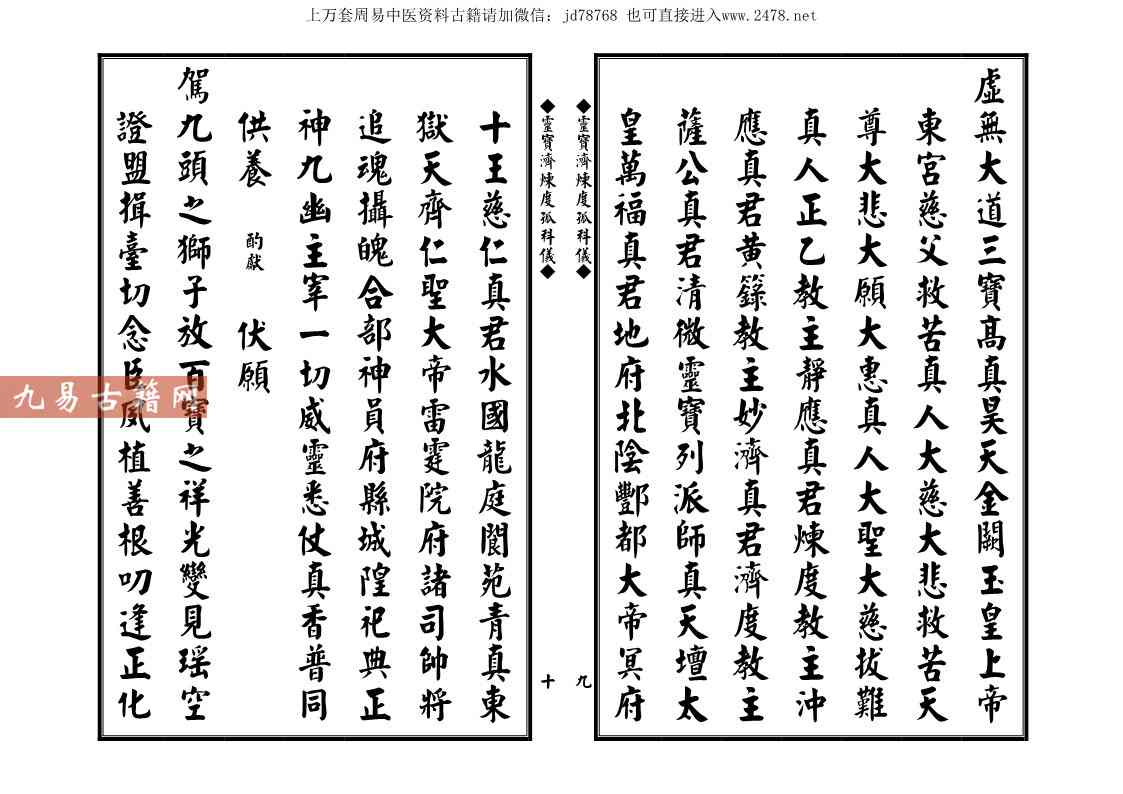 上万套周易中医资料古籍请加微信：jd78768 也可直接进入www.2478.net
虛無大道三寶高真昊天金闕玉皇上帝
東宮慈父救苦真人大慈大悲救苦天
尊大悲大願大惠真人大聖大慈拔難
真人正乙教主靜應真君煉度教主沖
應真君黃籙教主妙濟真君濟度教主
薩公真君清微靈寶列派師真天壇太
皇萬福真君地府北陰酆都大帝冥府
◆靈寶濟煉度孤科儀◆
九
◆靈寶濟煉度孤科儀◆
十
十王慈仁真君水國龍庭閬苑青真東
獄天齊仁聖大帝雷霆院府諸司帥將
追魂攝魄合部神員府縣城隍祀典正
神九幽主宰一切威靈悉仗真香普同
供養 酌獻 伏願
駕九頭之獅子放百寶之祥光變見瑶空
證盟揖臺切念臣夙植善根叨逢正化
九易古籍网